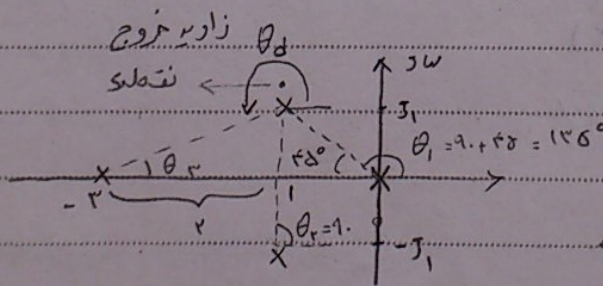 زاویه خروج θd
نقطه‌ی jω
j1
θ1 = ۹۰ + ۴۵ = ۱۳۵°
۴۵°
θ۳
-۳ ۲ 1
θ۲ = ۹۰
-j1